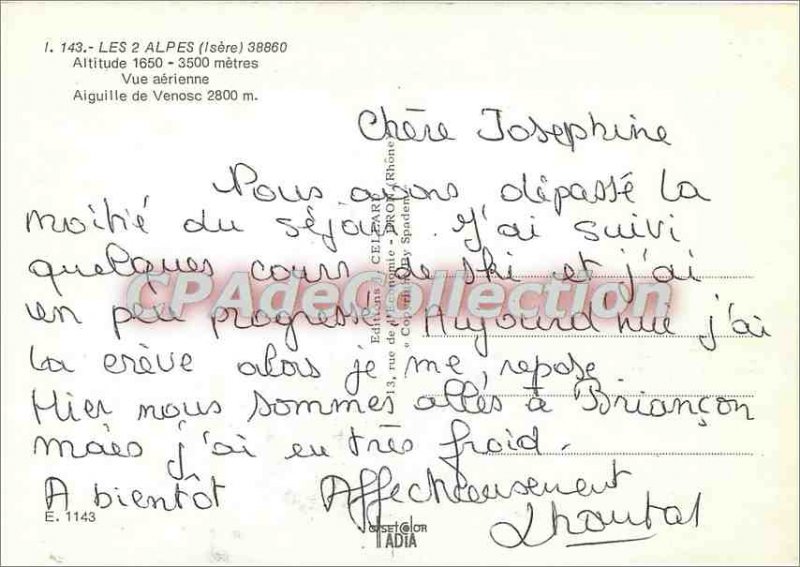 I. 143.- LES 2 ALPES (Isère) 38860
Altitude 1650 - 3500 mètres
Vue aérienne
Aiguille de Venosc 2800 m.
Chère Josephine
Nous avons dépassé la
moitié du séjour. J'ai suivi
quelques cours de ski et j'ai
un peu progressé. Aujourd'hui j'ai
la crève alors je me repose
Hier nous sommes allés à Briançon
mais j'ai eu très froid.
A bientôt Affectueusement
E. 1143
Editions J. CELLARD
13, rue de l'Economie - BRON (Rhône)
« Copyright » By Spadem
CPAdeCollection
OFSETCOLOR
IADIA